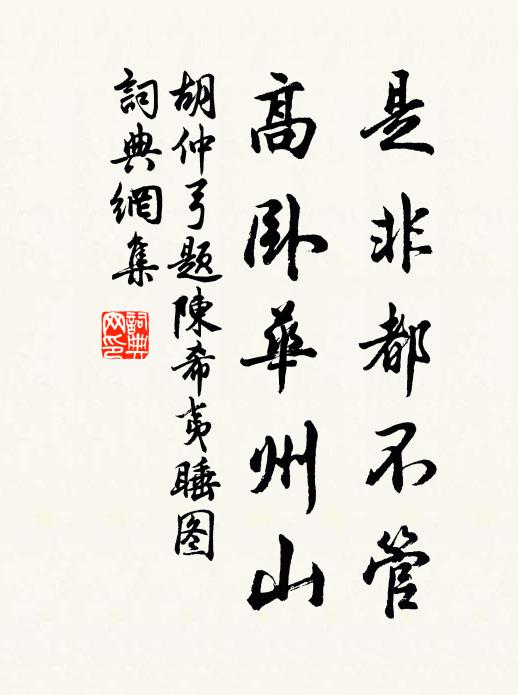 是非都不管
高卧華州山
胡仲弓题陳希夷睡图
詞典網集
詞典
网印